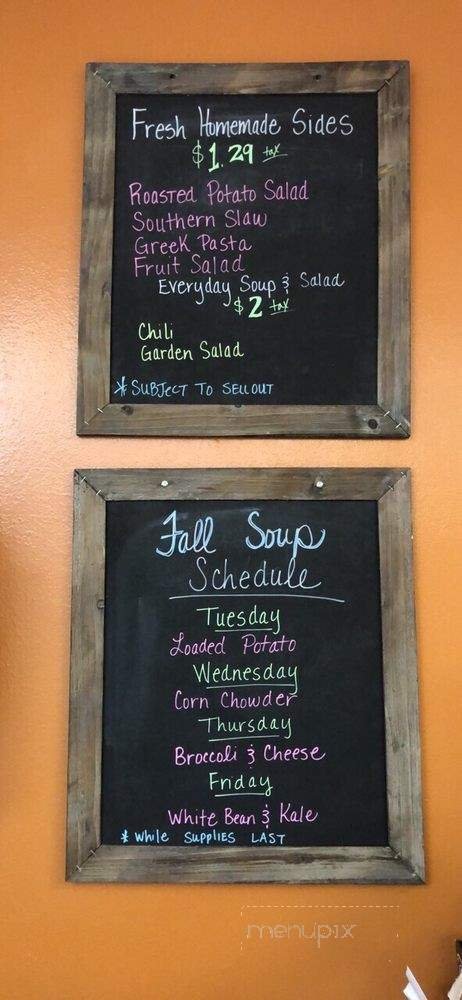 Fresh Homemade Sides
$1.29 tax
Roasted Potato Salad
Southern Slaw
Greek Pasta
Fruit Salad
Everyday Soup & Salad
$2 tax
Chili
Garden Salad
* SUBJECT TO SELLOUT
Fall Soup
Schedule
Tuesday
Loaded Potato
Wednesday
Corn Chowder
Thursday
Broccoli & Cheese
Friday
White Bean & Kale
* While SUPPLIES LAST
menupix